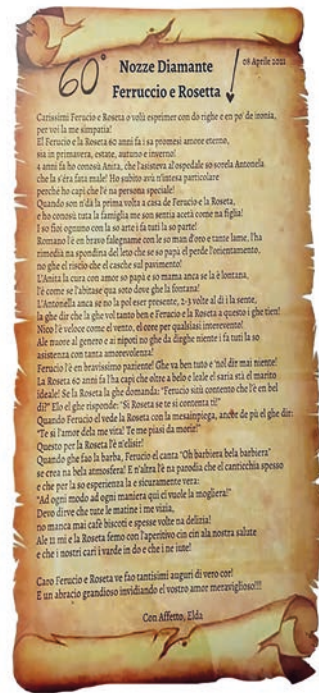 60°
Nozze Diamante
08 Aprile 2021
Ferruccio e Rosetta
Carissimi Ferucio e Roseta o volù esprimer con do righe e en po' de ironia,
per voi la me simpatia!
El Ferucio e la Roseta 60 anni fa i sa promesi amore eterno,
sia in primavera, estate, autuno e inverno!
4 anni fa ho conosù Anita, che l'asisteva al ospedale so sorela Antonela
che la s'éra fata male! Ho subito avù n'intesa particolare
perchè ho capì che l'è na persona speciale!
Quando son n'dà la prima volta a casa de Ferucio e la Roseta,
e ho conosù tuta la famiglia me son sentia acetà come na figlia!
I so fioi ognuno con la so arte i fa tuti la so parte!
Romano l'è en bravo falegname con le so man d'oro e tante lame, l'ha
rimedià na spondina del leto che se so papà el perde l'orientamento,
no ghe el riscio che el casche sul pavimento!
L'Anita la cura con amor so papà e so mama anca se la è lontana,
l'è come se l'abitase qua soto dove ghe la fontana!
L'Antonella anca se no la pol eser presente, 2-3 volte al dì i la sente,
la ghe dir che la ghe vol tanto ben e Ferucio e la Roseta a questo i ghe tien!
Nico l'è veloce come el vento, el core per qualsiasi interevento!
Ale nuore al genero e ai nipoti no ghe da dirghe niente i fa tuti la so
asistenza con tanta amorevolenza!
Ferucio l'è en bravissimo paziente! Ghe va ben tuto e 'nol dir mai niente!
La Roseta 60 anni fa l'ha capì che oltre a belo e leale el saria stà el marito
ideale! Se la Roseta la ghe domanda: "Ferucio sitù contento che l'è en bel
dì?" Elo el ghe risponde: "Sì Roseta se te si contenta ti!"
Quando Ferucio el vede la Roseta con la mesainpiega, anche de più el ghe dir:
"Te si l'amor dela me vita! Te me piasi da morir!"
Questo per la Roseta l'è n'elisir!
Quando ghe fao la barba, Ferucio el canta "Oh barbiera bela barbiera"
se crea na bela atmosfera! E n'altra l'è na parodia che el canticchia spesso
e che per la so esperienza la è sicuramente vera:
"Ad ogni modo ad ogni maniera qui ci vuole la mogliera!"
Devo dirve che tute le matine i me vizia,
no manca mai cafè biscoti e spesse volte na delizia!
Ale 11 mi e la Roseta femo con l'aperitivo cin cin ala nostra salute
e che i nostri cari i varde in do e che i ne iute!
Caro Ferucio e Roseta ve fao tantisimi auguri di vero cor!
E un abracio grandioso invidiando el vostro amor meraviglioso!!!
Con Affetto, Elda